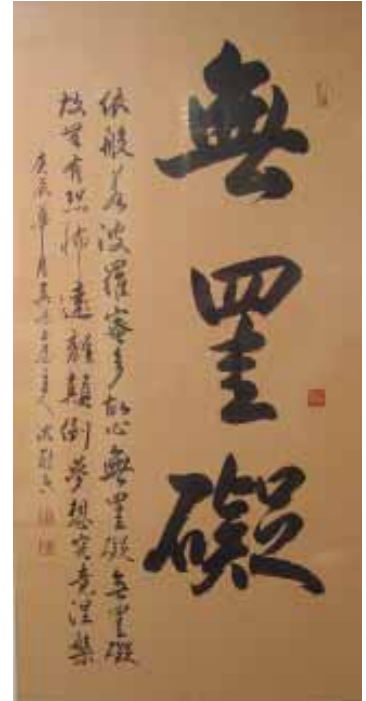 無罣礙
依般若波羅蜜多故心無罣礙無罣礙
故無有恐怖遠離顛倒夢想究竟涅槃
庚辰年月